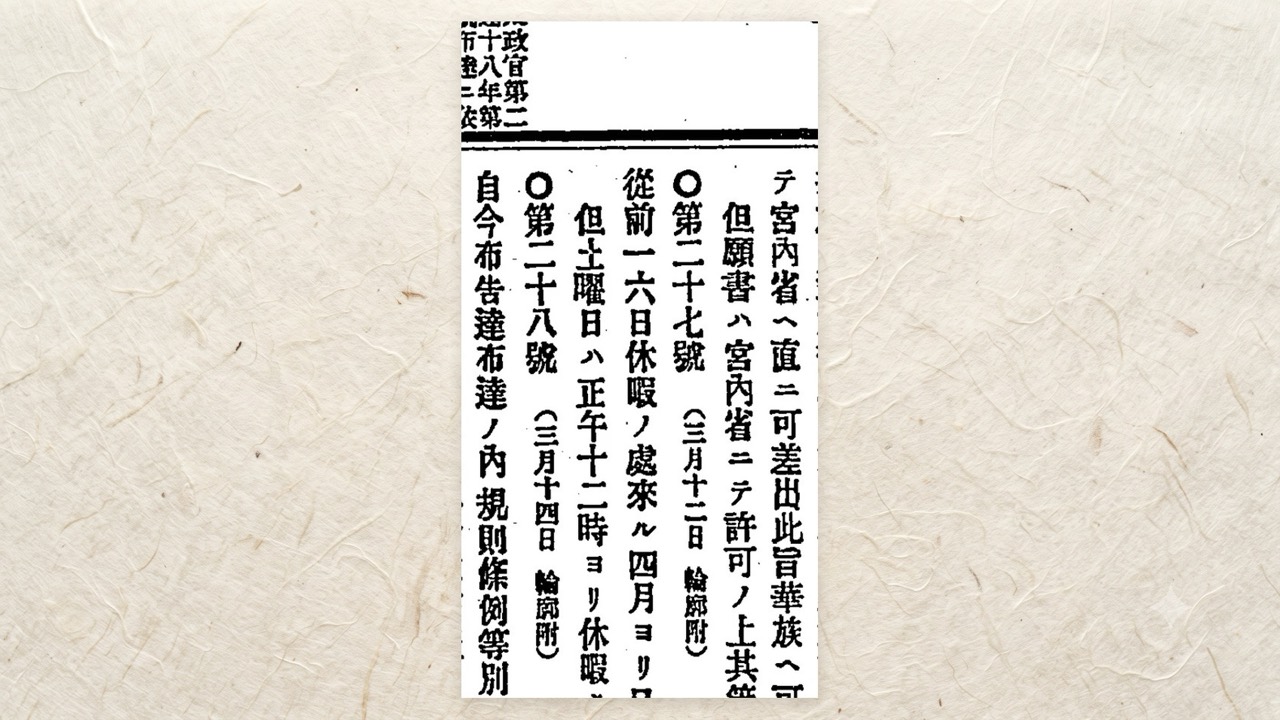 政官第二
十八年第
布達ニ依
テ宮內省ヘ直ニ可差出此旨華族ヘ可
但願書ハ宮內省ニテ許可ノ上其
〇第二十七號 (三月十二日 輪廓附)
從前一六日休暇ノ處來ル四月ヨリ
但土曜日ハ正午十二時ヨリ休暇
〇第二十八號 (三月十四日 輪廓附)
自今布告達布達ノ內規則條例等別